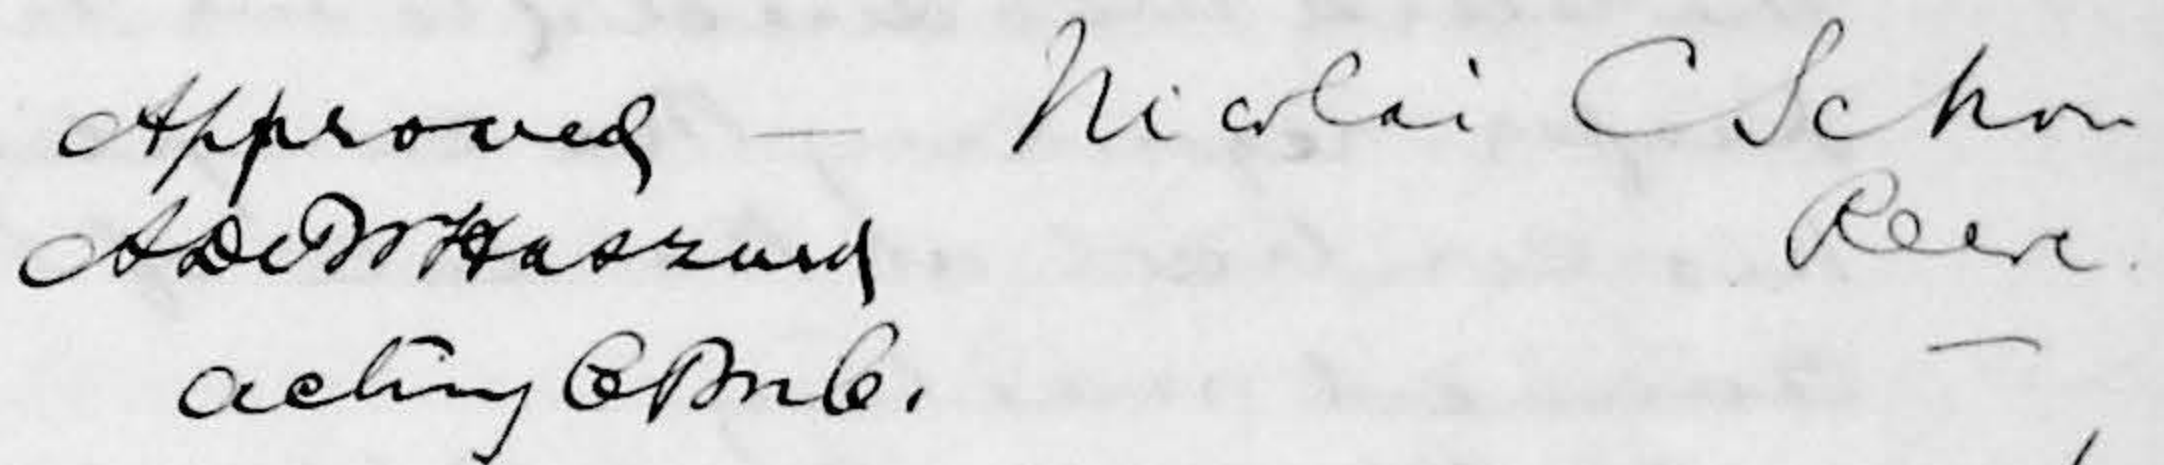 Approved — Nicolai C Schou
A DeB Haszard Reeve.
acting C.B.M.C.